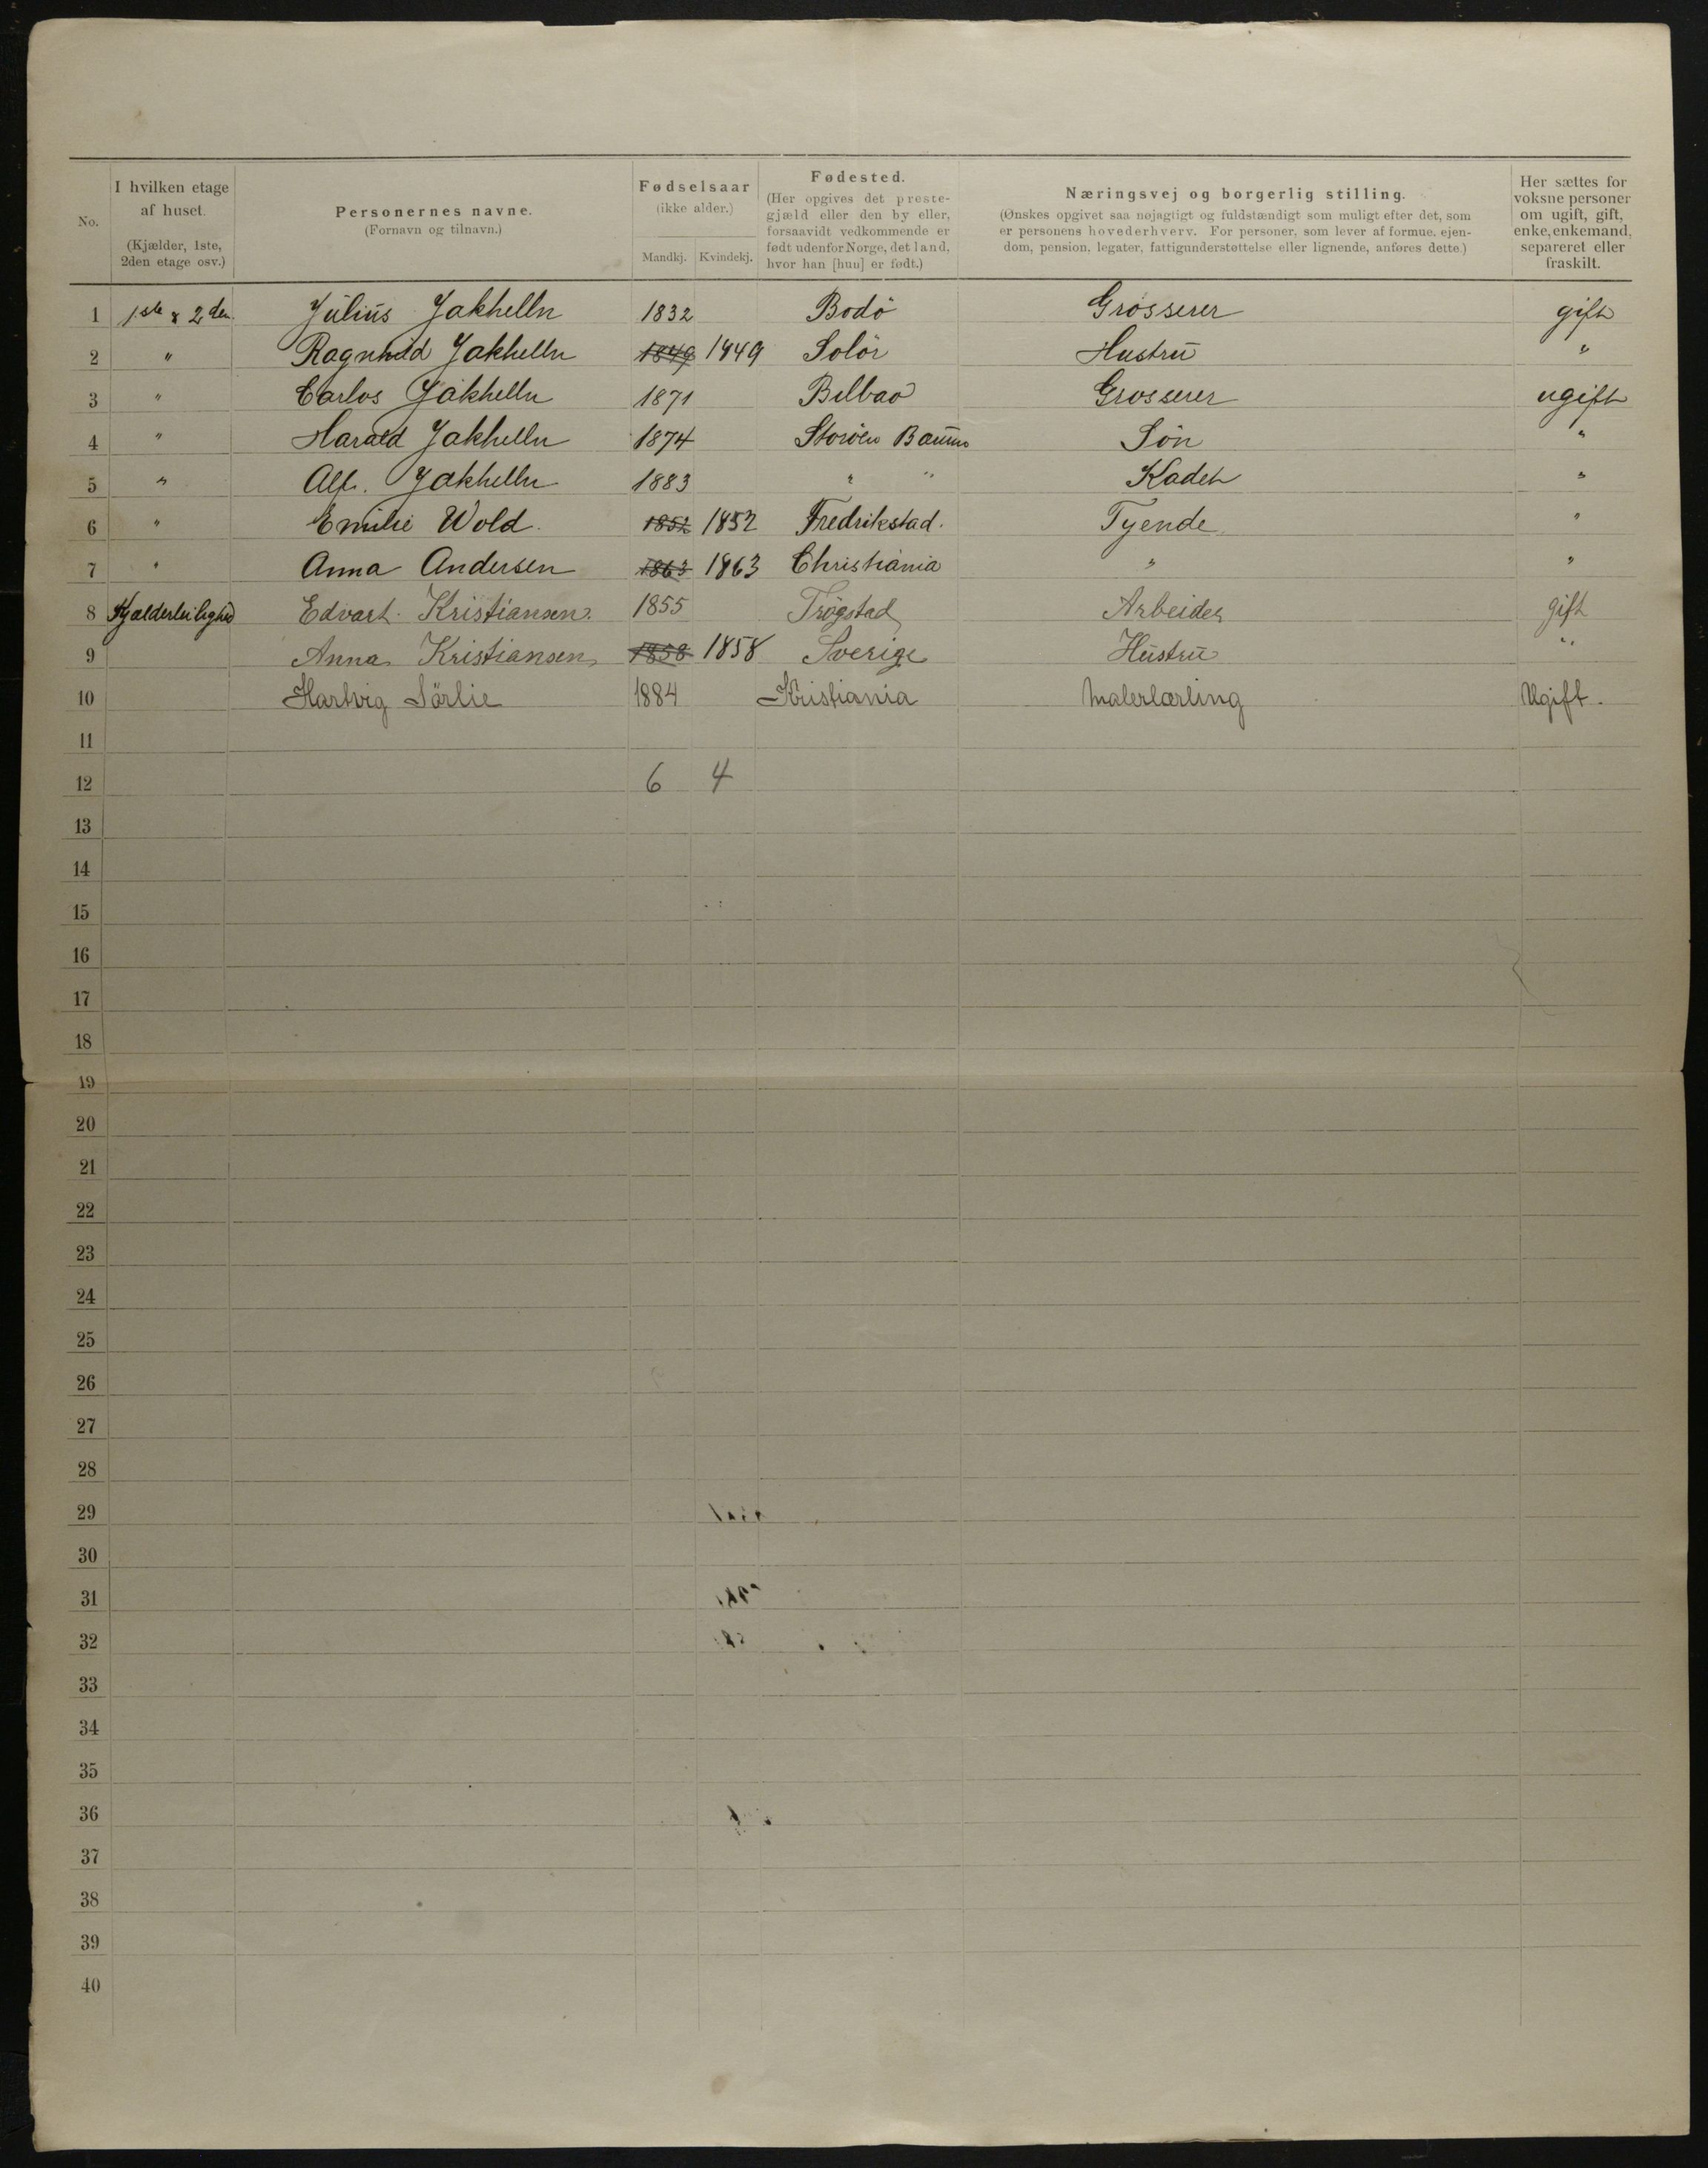 No. I hvilken etage af huset. (Kjælder, 1ste, 2den etage osv.) Personernes navne. (Fornavn og tilnavn.) Fødselsaar (ikke alder.) Mandkj. Kvindekj. Fødested. (Her opgives det prestegjæld eller den by eller, forsaavidt vedkommende er født udenfor Norge, det land, hvor han [hun] er født.) Næringsvej og borgerlig stilling. (Ønskes opgivet saa nøjagtigt og fuldstændigt som muligt efter det, som er personens hovederhverv. For personer, som lever af formue, ejendom, pension, legater, fattigunderstøttelse eller lignende, anføres dette.) Her sættes for voksne personer om ugift, gift, enke, enkemand, separeret eller fraskilt.
1 1ste & 2den Julius Jakhelln 1832 Bodö Grosserer gift
2 " Ragnhild Jakhelln 1849 1849 Solör Hustru "
3 " Carlos Jakhelln 1871 Bilbao Grosserer ugift
4 " Harald Jakhelln 1874 Storöen Bærum Sön "
5 " Alf. Jakhelln 1883 " " Kadet "
6 " Emilie Wold. 1852 1852 Fredrikstad. Tyende "
7 " Anna Andersen 1863 1863 Christiania " "
8 Kjælderleilighed Edvart Kristiansen. 1855 Trögstad Arbeider gift
9 Anna Kristiansen 1858 1858 Sverige Hustru "
10 Hartvig Sörlie 1884 Kristiania Malerlærling Ugift.
11
12 6 4
13
14
15
16
17
18
19
20
21
22
23
24
25
26
27
28
29
30
31
32
33
34
35
36
37
38
39
40